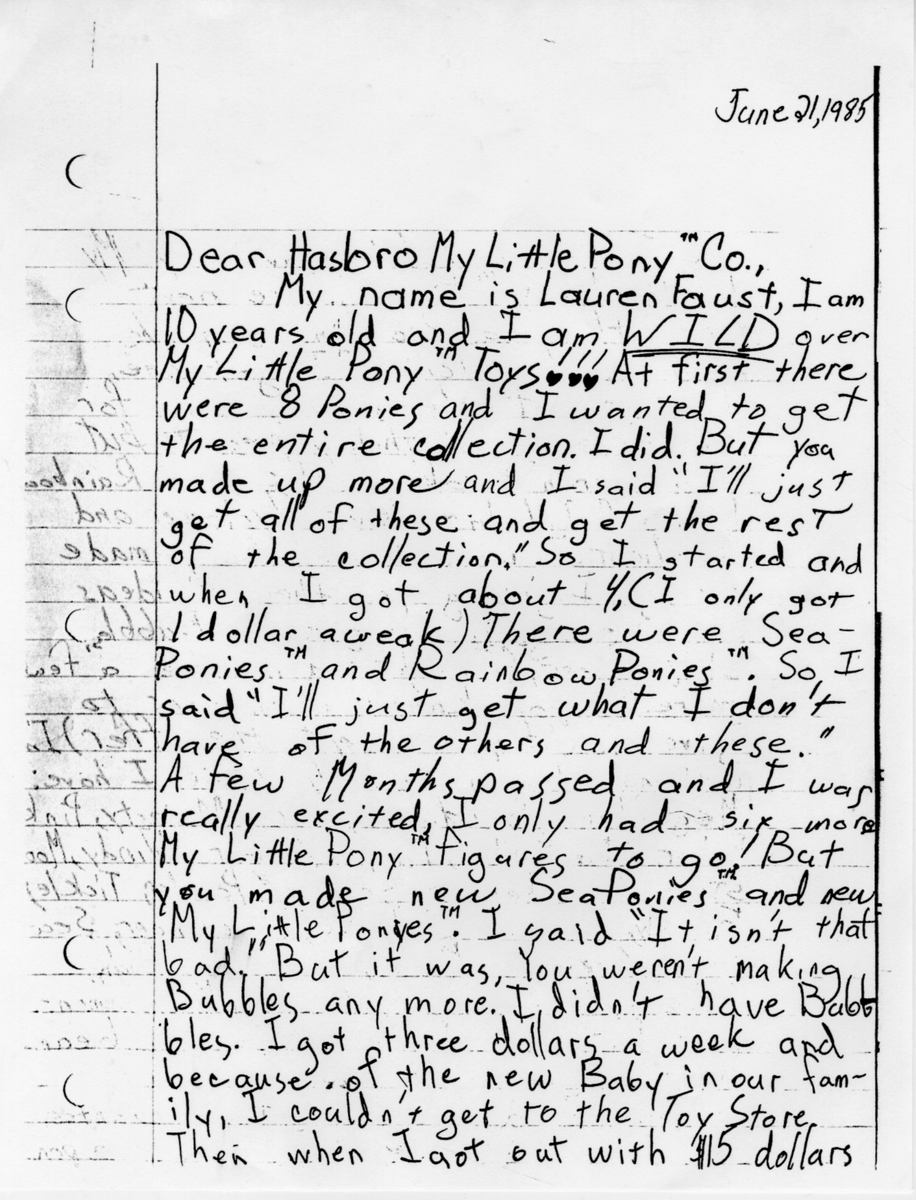 June 21, 1985
Dear Hasbro My Little Pony™ Co.,
My name is Lauren Faust, I am
10 years old and I am WILD over
My Little Pony™ Toys!!! At first there
were 8 Ponies and I wanted to get
the entire collection. I did. But you
made up more and I said "I'll just
get all of these and get the rest
of the collection." So I started and
when I got about 4, (I only got
1 dollar a weak) There were Sea-
Ponies™ and Rainbow Ponies™. So, I
said "I'll just get what I don't
have of the others and these."
A few Months passed and I was
really excited, I only had six more
My Little Pony™ figures to go! But
you made new SeaPonies™ and new
My Little Ponyes™. I said "It isn't that
bad." But it was, You weren't making
Bubbles any more. I didn't have Bubb
bles. I got three dollars a week and
because of the new Baby in our fam-
ily, I couldn't get to the Toy Store.
Then when I got out with $15 dollars
My
for
but
Rainbow
and
made
ideas
a few
to
I have:
Pink
Tickle
Sea